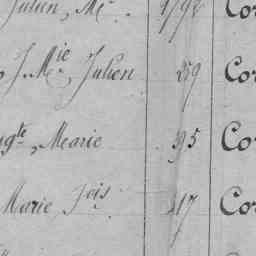 Julien, Me. 1792 Co
J. Mie. Julien 259 Co
gte, Mearie 395 Co
Marie fois 417 Co